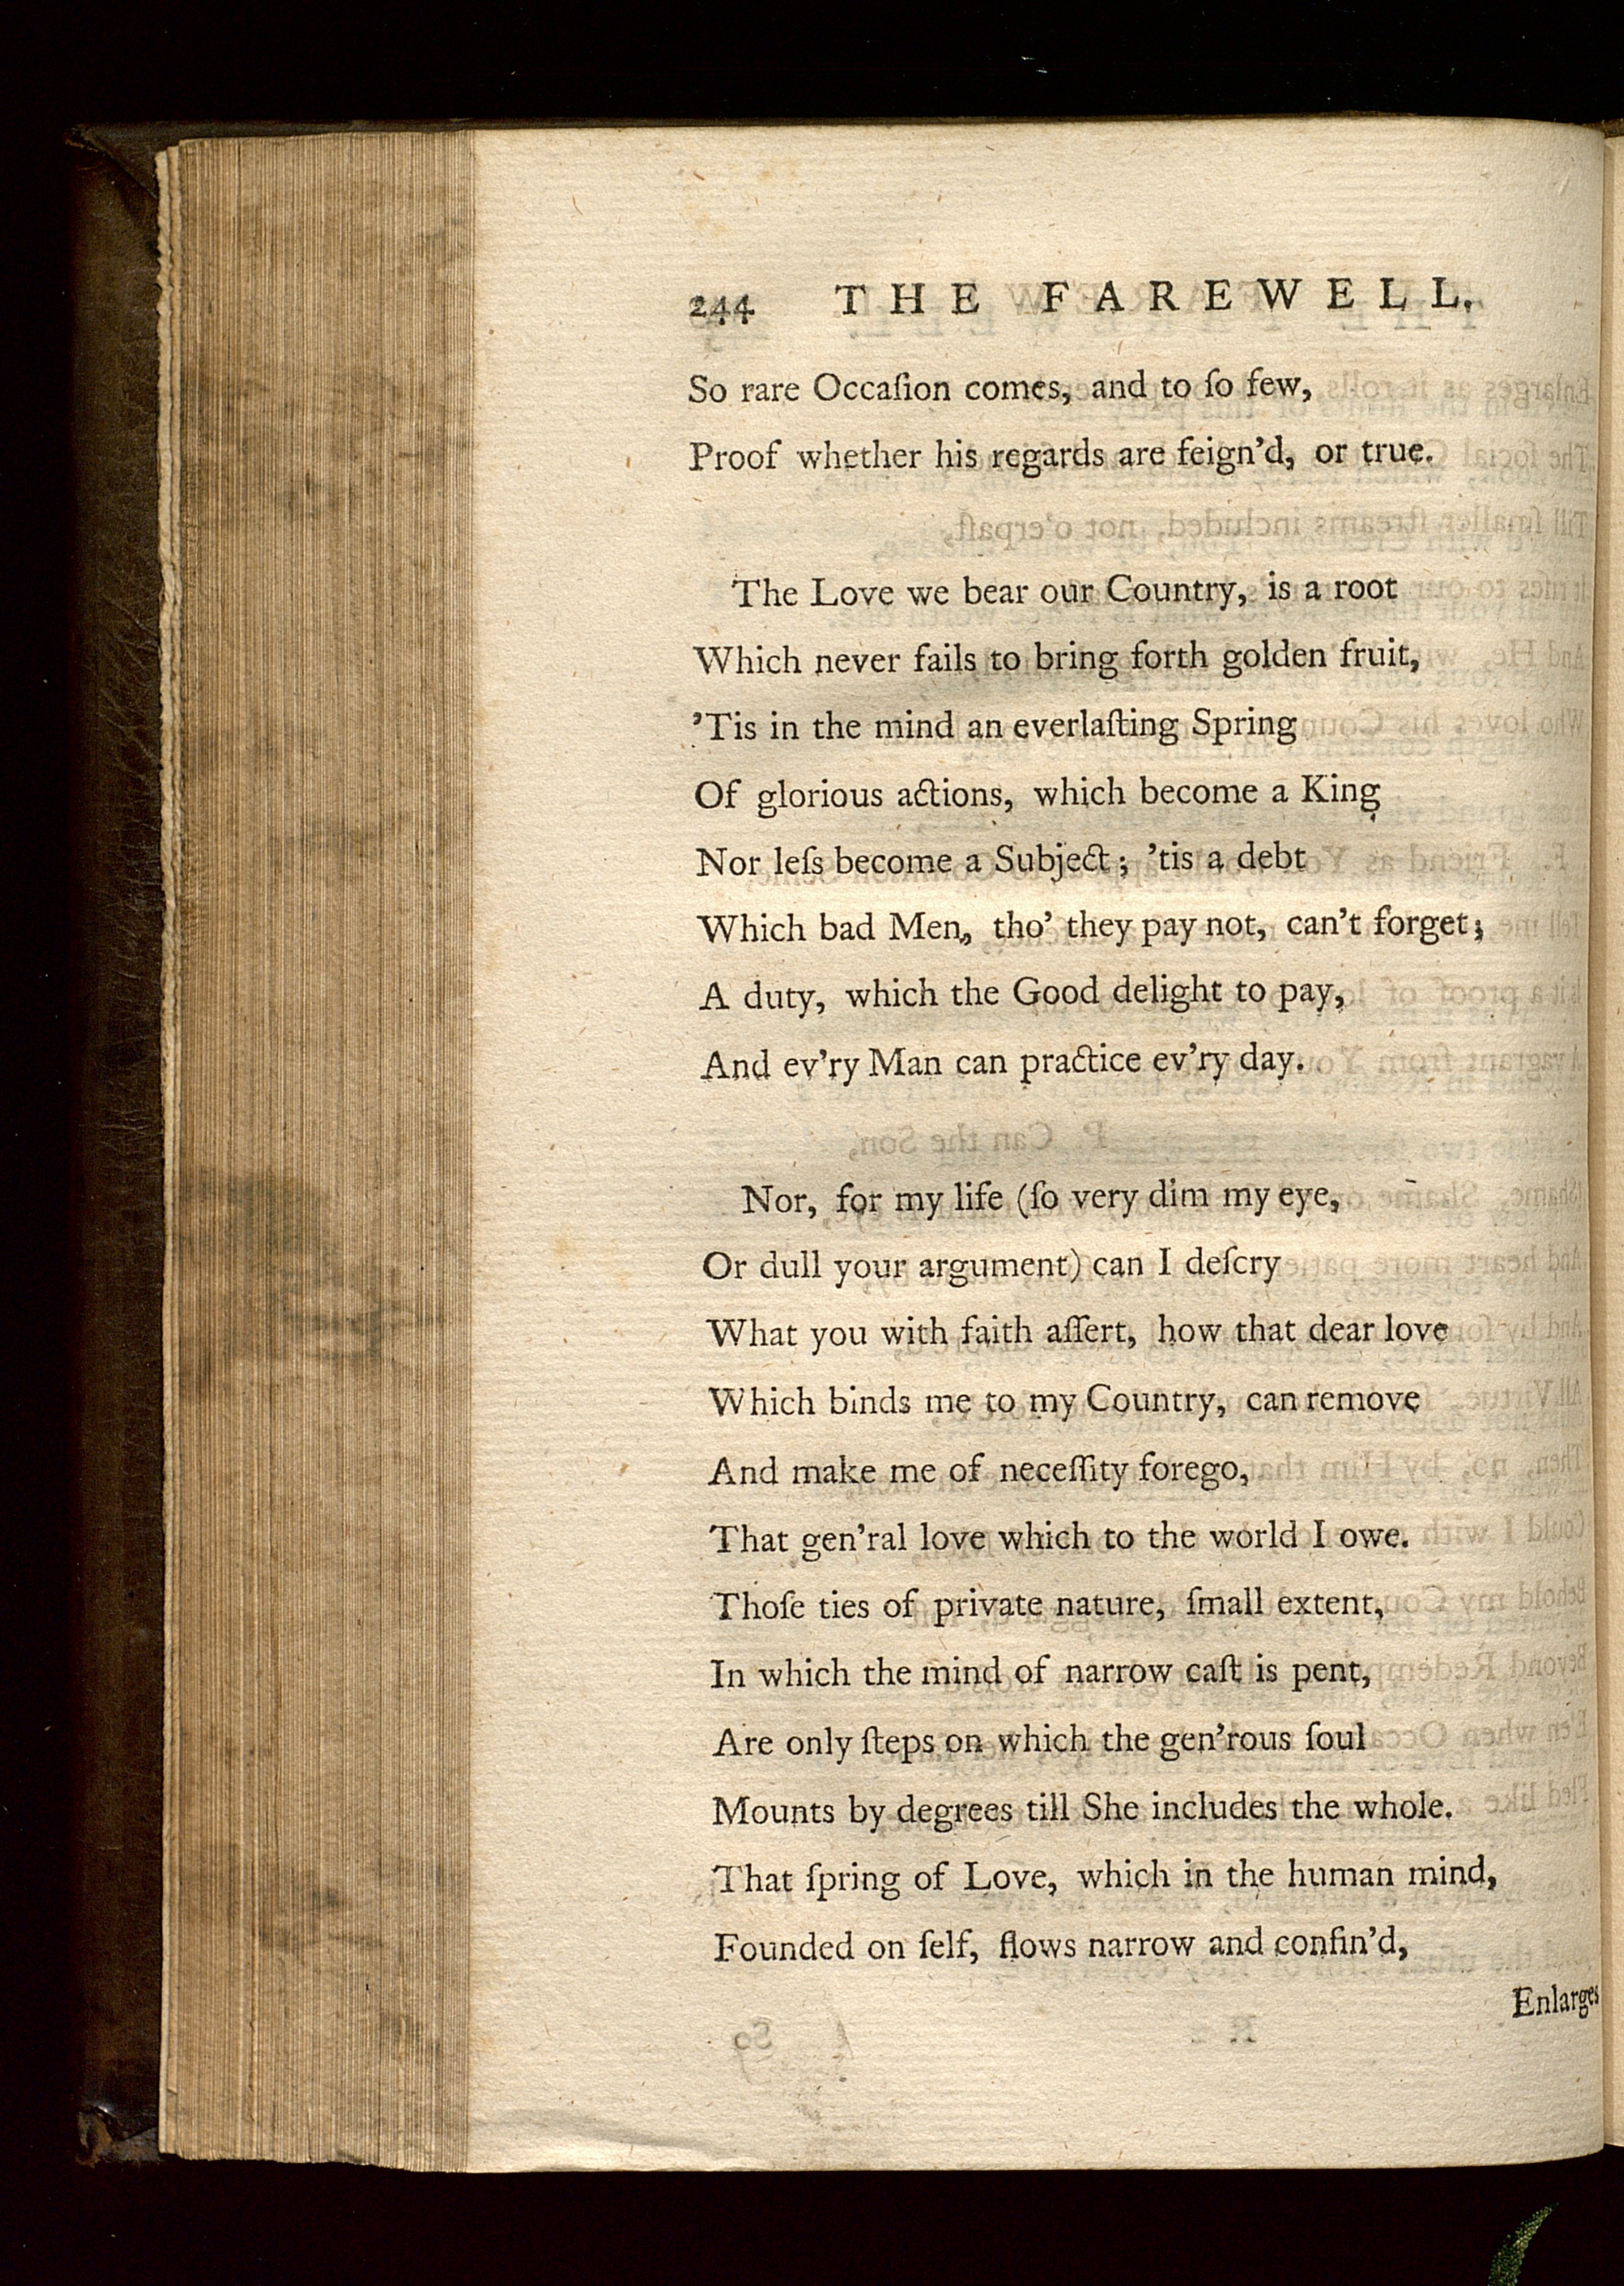 244 THE FAREWELL.
So rare Occaſion comes, and to ſo few,
Proof whether his regards are feign'd, or true.
The Love we bear our Country, is a root
Which never fails to bring forth golden fruit,
'Tis in the mind an everlaſting Spring
Of glorious actions, which become a King
Nor leſs become a Subject; 'tis a debt
Which bad Men, tho' they pay not, can't forget;
A duty, which the Good delight to pay,
And ev'ry Man can practice ev'ry day.
Nor, for my life (ſo very dim my eye,
Or dull your argument) can I deſcry
What you with faith aſſert, how that dear love
Which binds me to my Country, can remove
And make me of neceſſity forego,
That gen'ral love which to the world I owe.
Thoſe ties of private nature, ſmall extent,
In which the mind of narrow caſt is pent,
Are only ſteps on which the gen'rous ſoul
Mounts by degrees till She includes the whole.
That ſpring of Love, which in the human mind,
Founded on ſelf, flows narrow and confin'd,
Enlarges